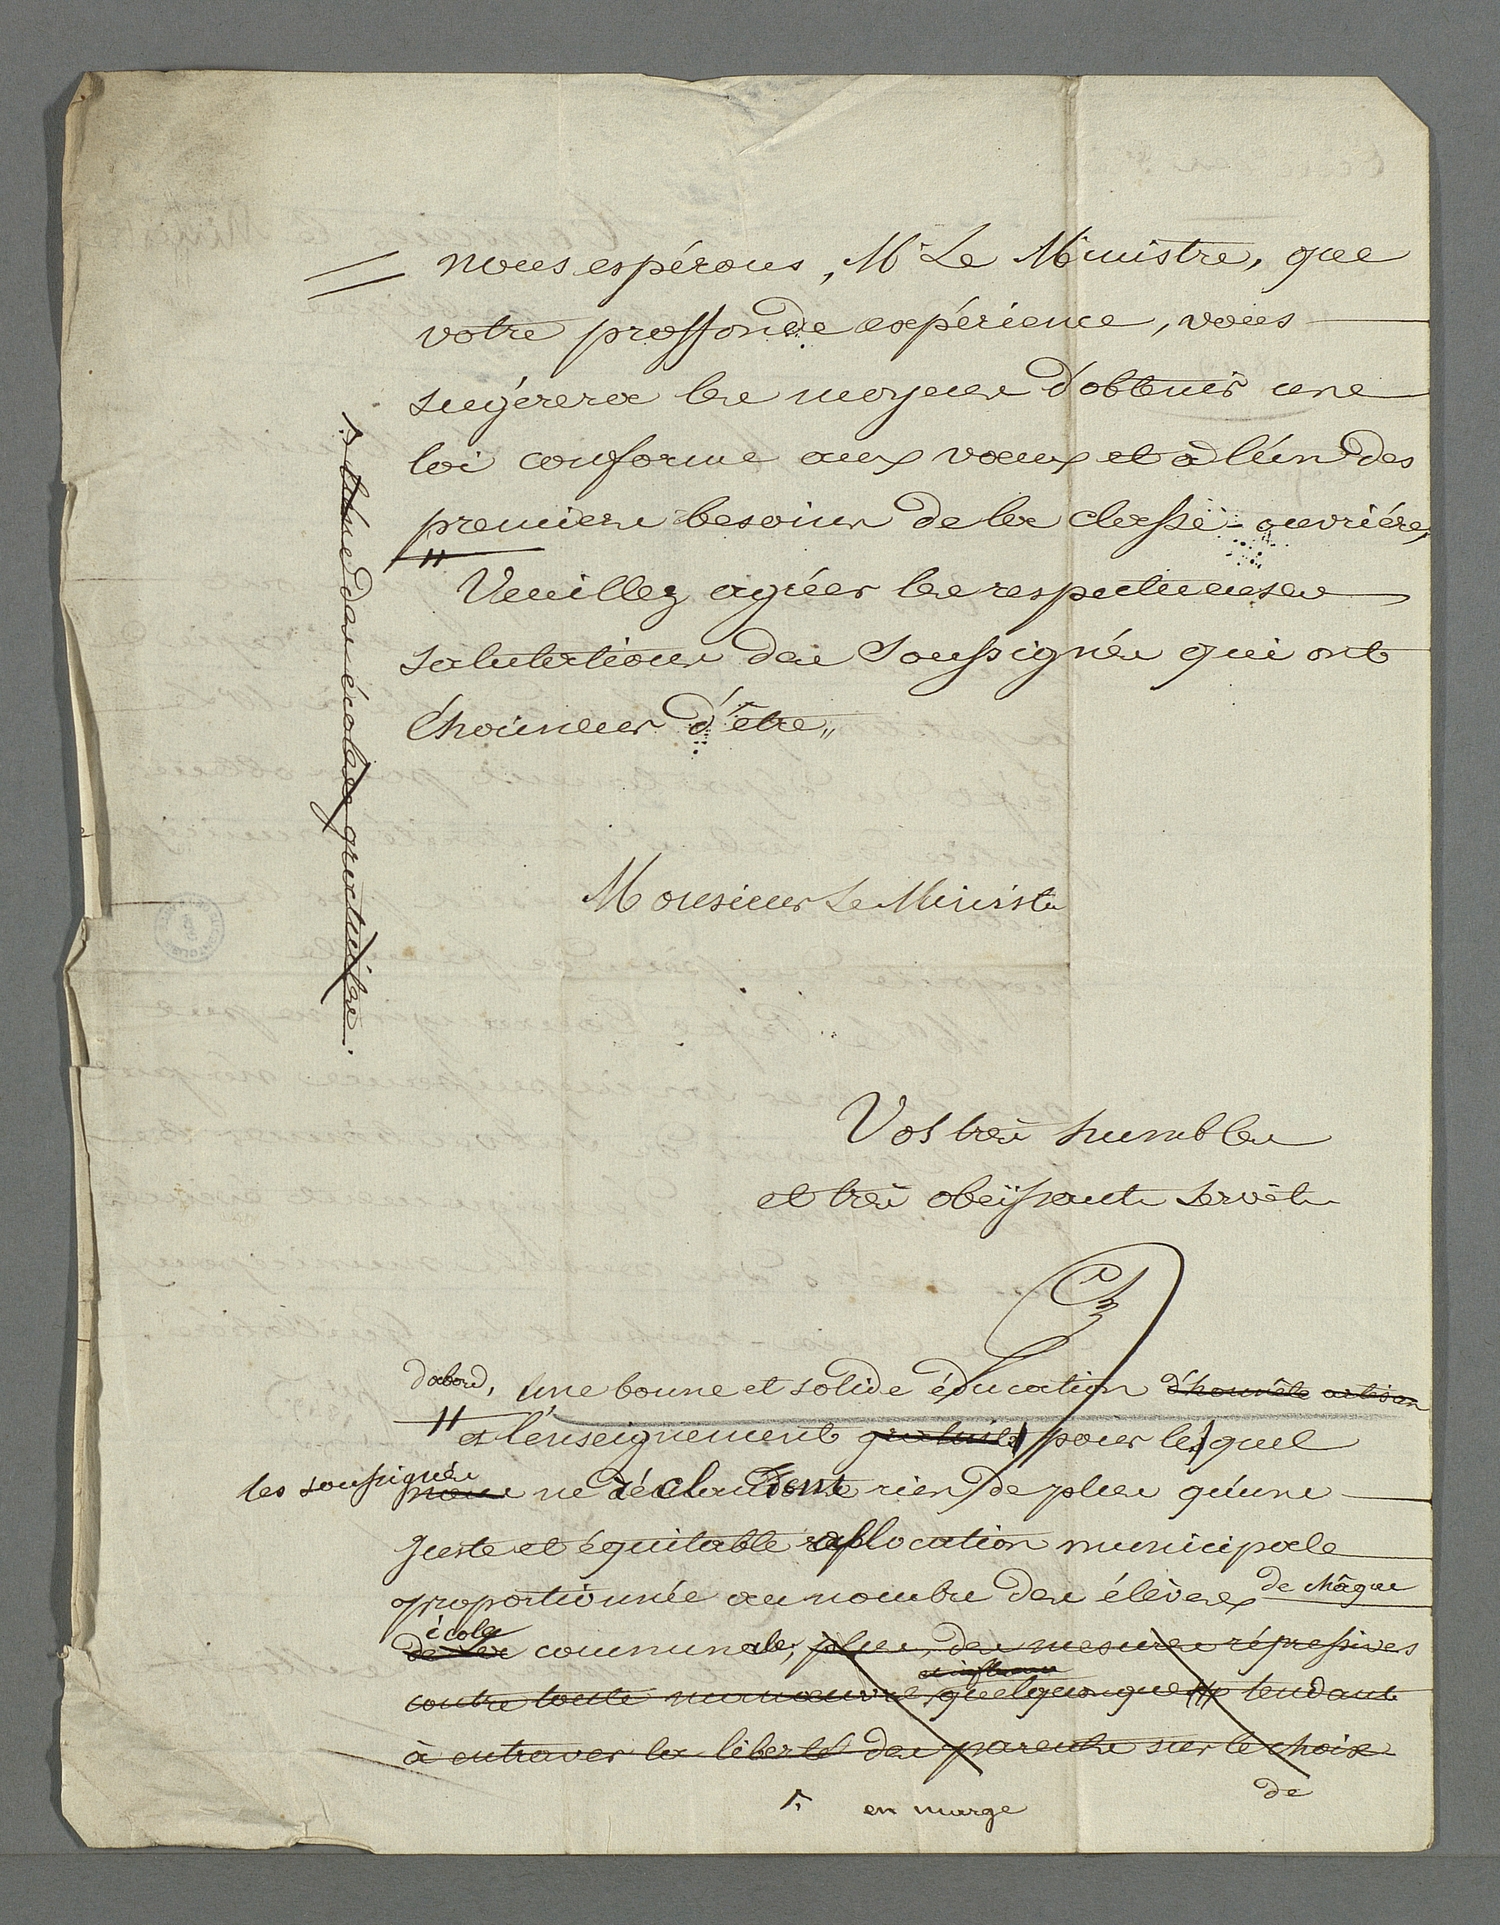 nous espérons, Mr Le Ministre, que
votre proffonde expérience, vous
sugérera les moyens d'obtenir une
loi conforme aux vœux et à l'un des
premiers besoins de la classe ouvrière,
"
Veuillez agréer les respectueuses
salutations des Soussignés qui ont
l'honneur d'être,,
Monsieur Le Ministre
Vos très humbles
et très obéissants servits
dabord, une bonne et solide éducation d'honnête artisan
" et l'enseignement gratuits pour le quel
les soussignés nous ne réclament rien de plus qu'une
juste et équitable allocation municipale
proportionnée au nombre des élèves de châque
école
de la communale; plus, des mesures répressives
contre toute manœuvre quelquonque tendant
à entraver la liberté des parents sur le choix
de
en marge
libre des écoles gratuites.